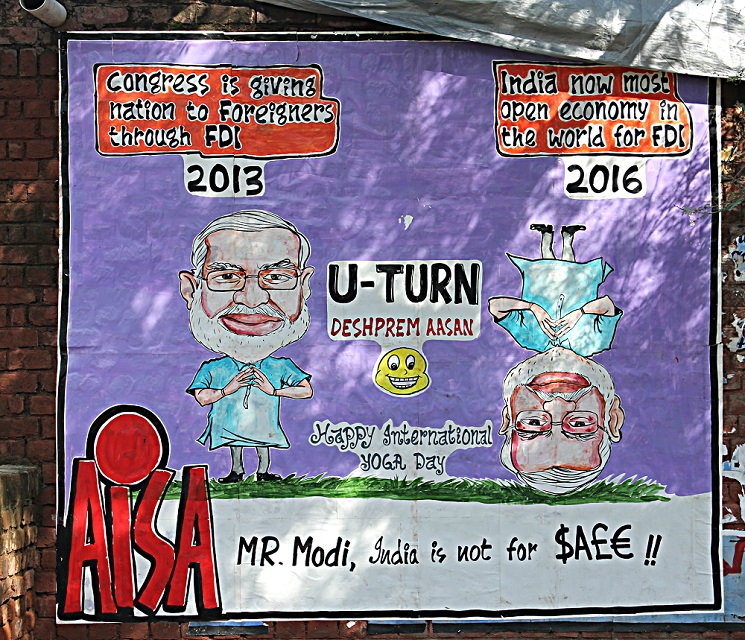 Congress is giving
nation to Foreigners
through FDI
2013
India now most
open economy in
the world for FDI
2016
U-TURN
DESHPREM AASAN
Happy International
YOGA DAY
AISA
MR. Modi, India is not for $A£€ !!